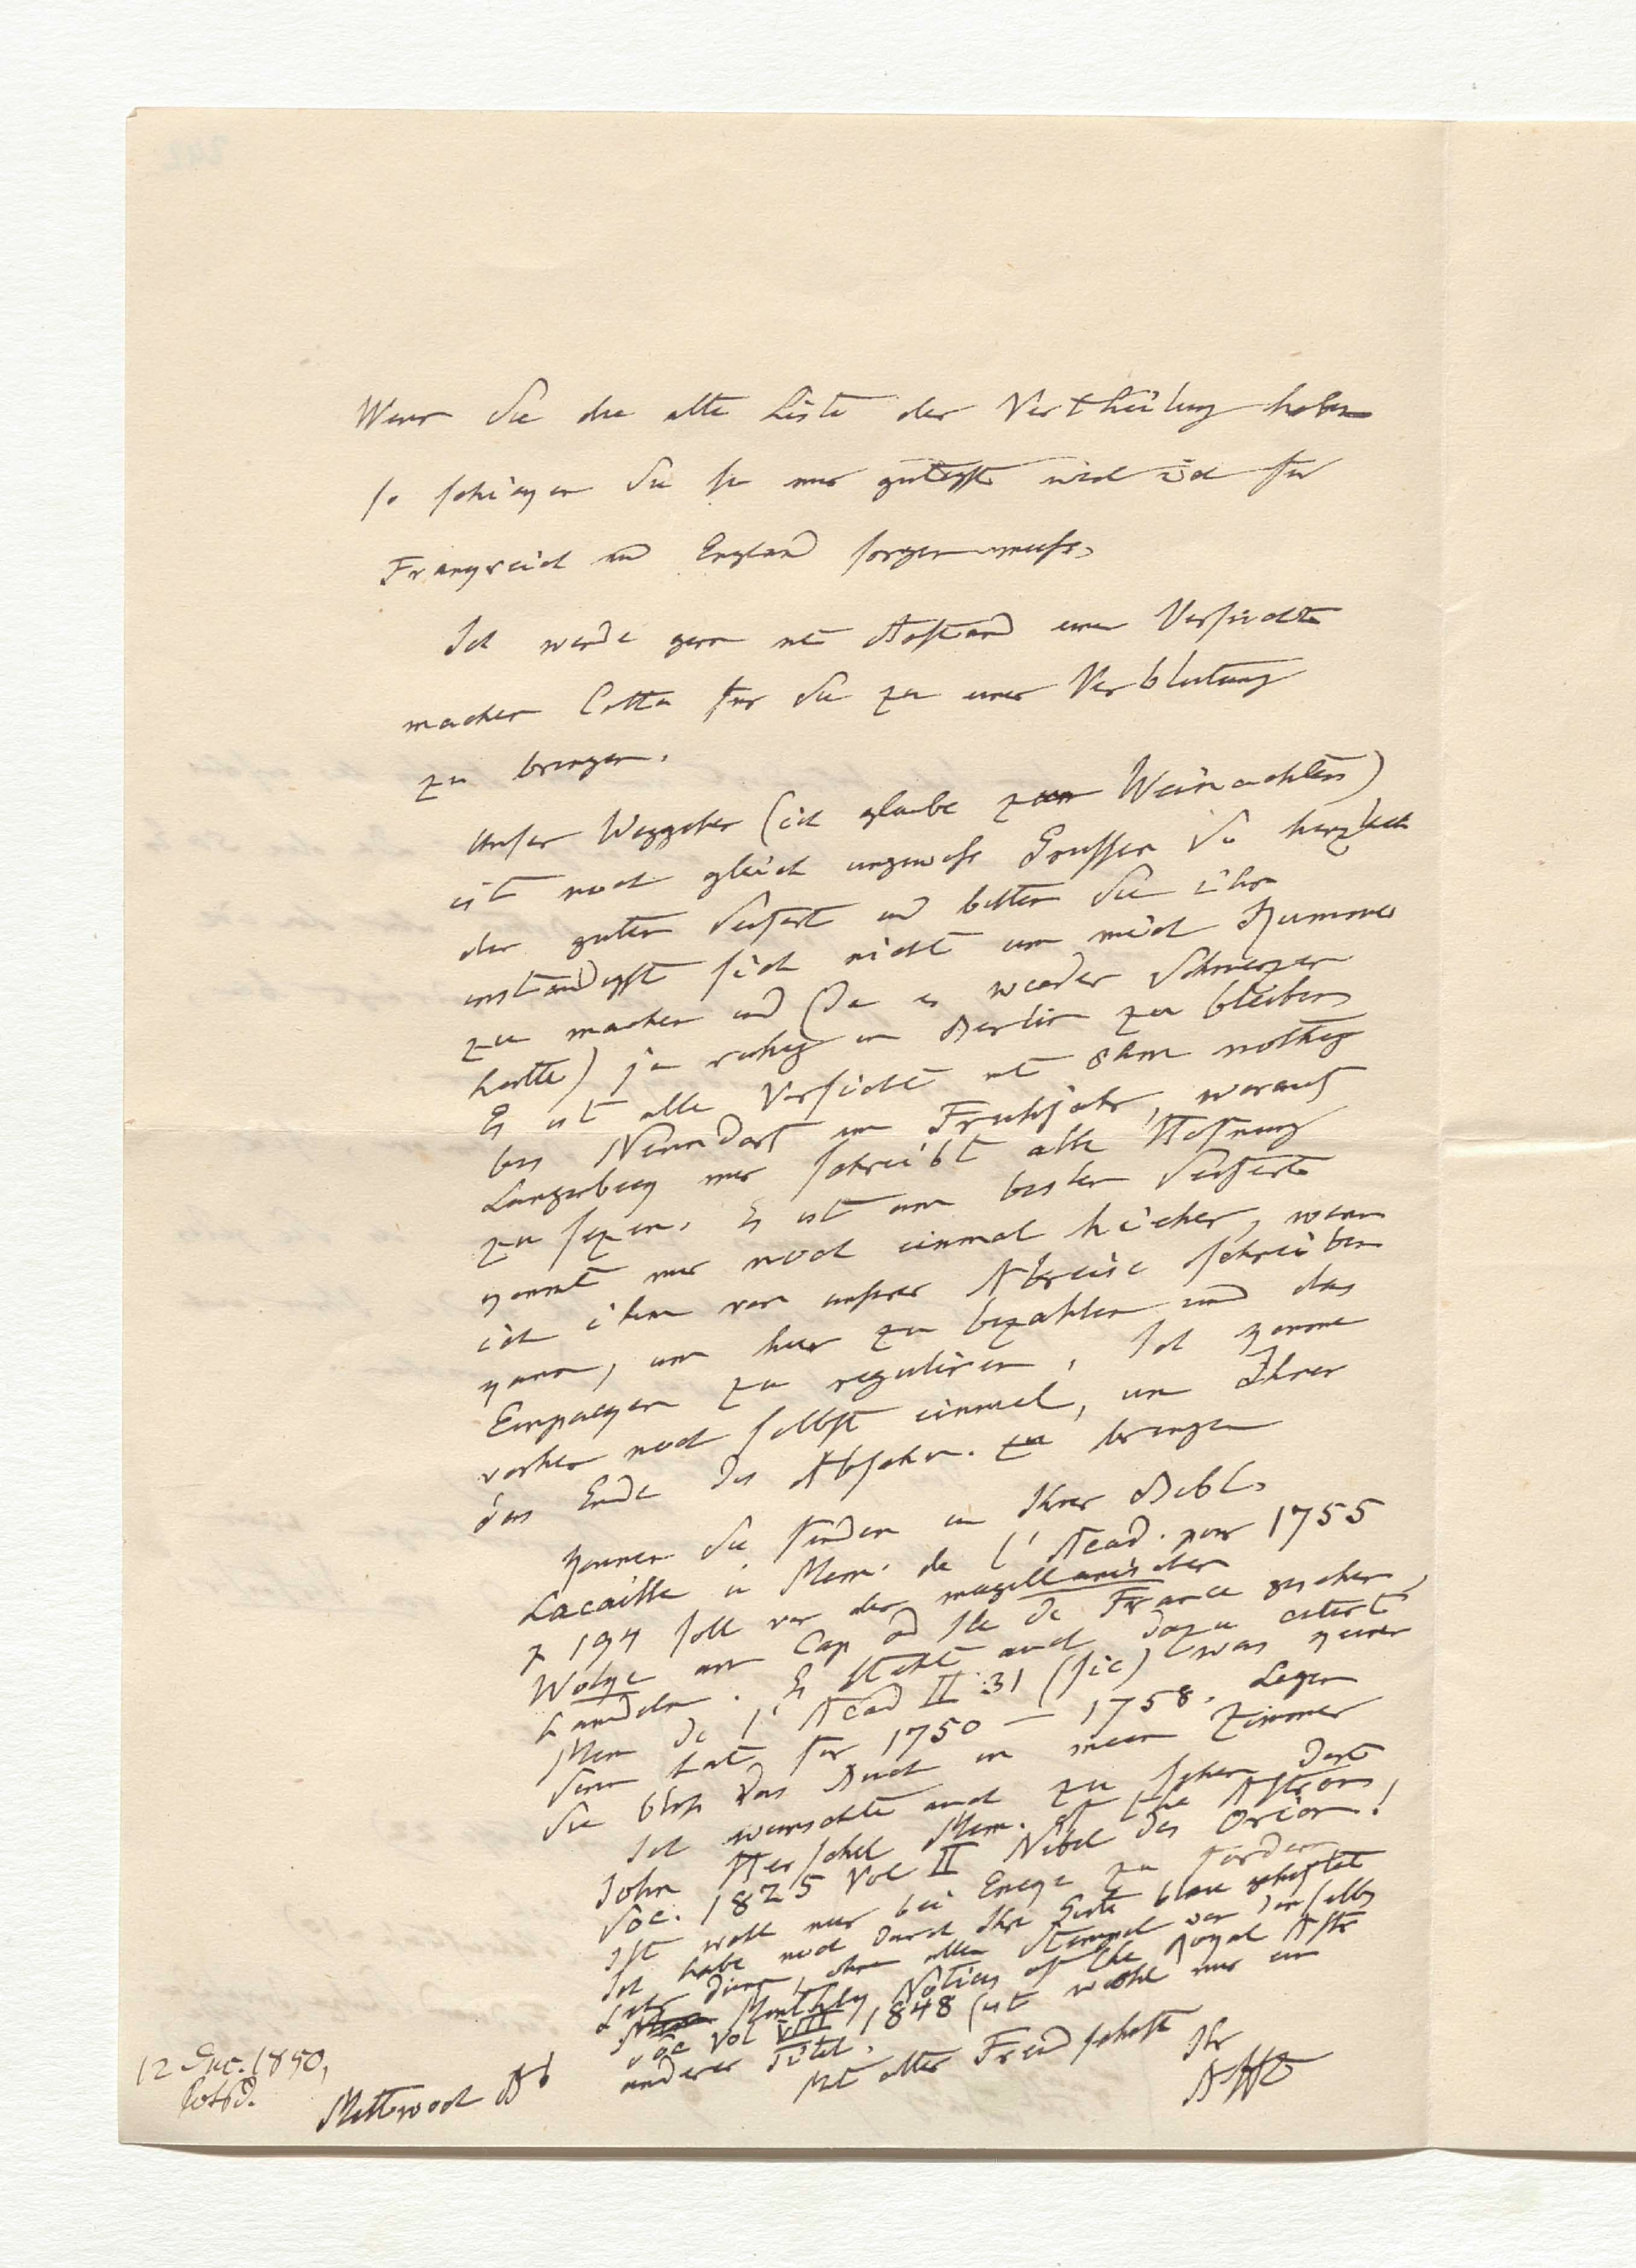 Wenn Sie die alte Liste der Vertheilung haben
so schicken Sie sie mir gütigst weil ich für
Frankreich und England sorgen muss.
Ich werde gern mit Anstand einen Versuch
machen Cotta für Sie zu einer Verblutung
zu bringen.
Unser Weggehen (ich glaube zum Weinachten)
ist noch gleich ungewiss Grüssen Sie herzlich
den guten Seifert und bitten Sie ihn
inständigst sich nicht um mich Kummer
zu machen und (da er wieder Schmerzen
hatte) ja ruhig in Berlin zu bleiben
Es ist alle Vorsicht mit ihm nöthig
bis Nenndorf im Frühjahr, worauf
Langenbeck mir schreibt alle Hofnung
zu sezen. Es ist am besten Seifert
kommt nur noch einmal hieher, wenn
ich ihm von unsrer Abreise schreiben
kann, um hier zu bezahlen und das
Einpacken zu reguliren. Ich komme
vorher noch selbst einmal, um Ihnen
das Ende des Abschn. zu bringen
Können Sie finden in Ihrer Bibl.
Lacaille in Mem. de l'Acad. pour 1755
p 194 soll von den magellanischen
Wolken am Cap od Ile de France gesehen,
handeln. Es steht auch dazu citirt
Mem de l'Acad II 31 (sic) was keinen
Sinn hat, für 1750 – 1758. Legen
Sie bloss das Buch in mein Zimmer
Ich wünschte auch zu sehen dort
John Herschel Mem. of the Astron.
Soc. 1825 Vol II Nebel des Orion!
Ist wohl nur bei Encke zu fordern
Ich habe noch durch Ihre Güte blau geheftet
sehr dünn, ohne allen Stempel von derselb
Monthly Notices of the Royal Astr
Soc Vol VIII 1848 (ist wohl nur ein
anderer Titel.
Mit alter Freundschaft
Ihr
AHt
Mittwoch
12 Dec. 1850,
Potsd.